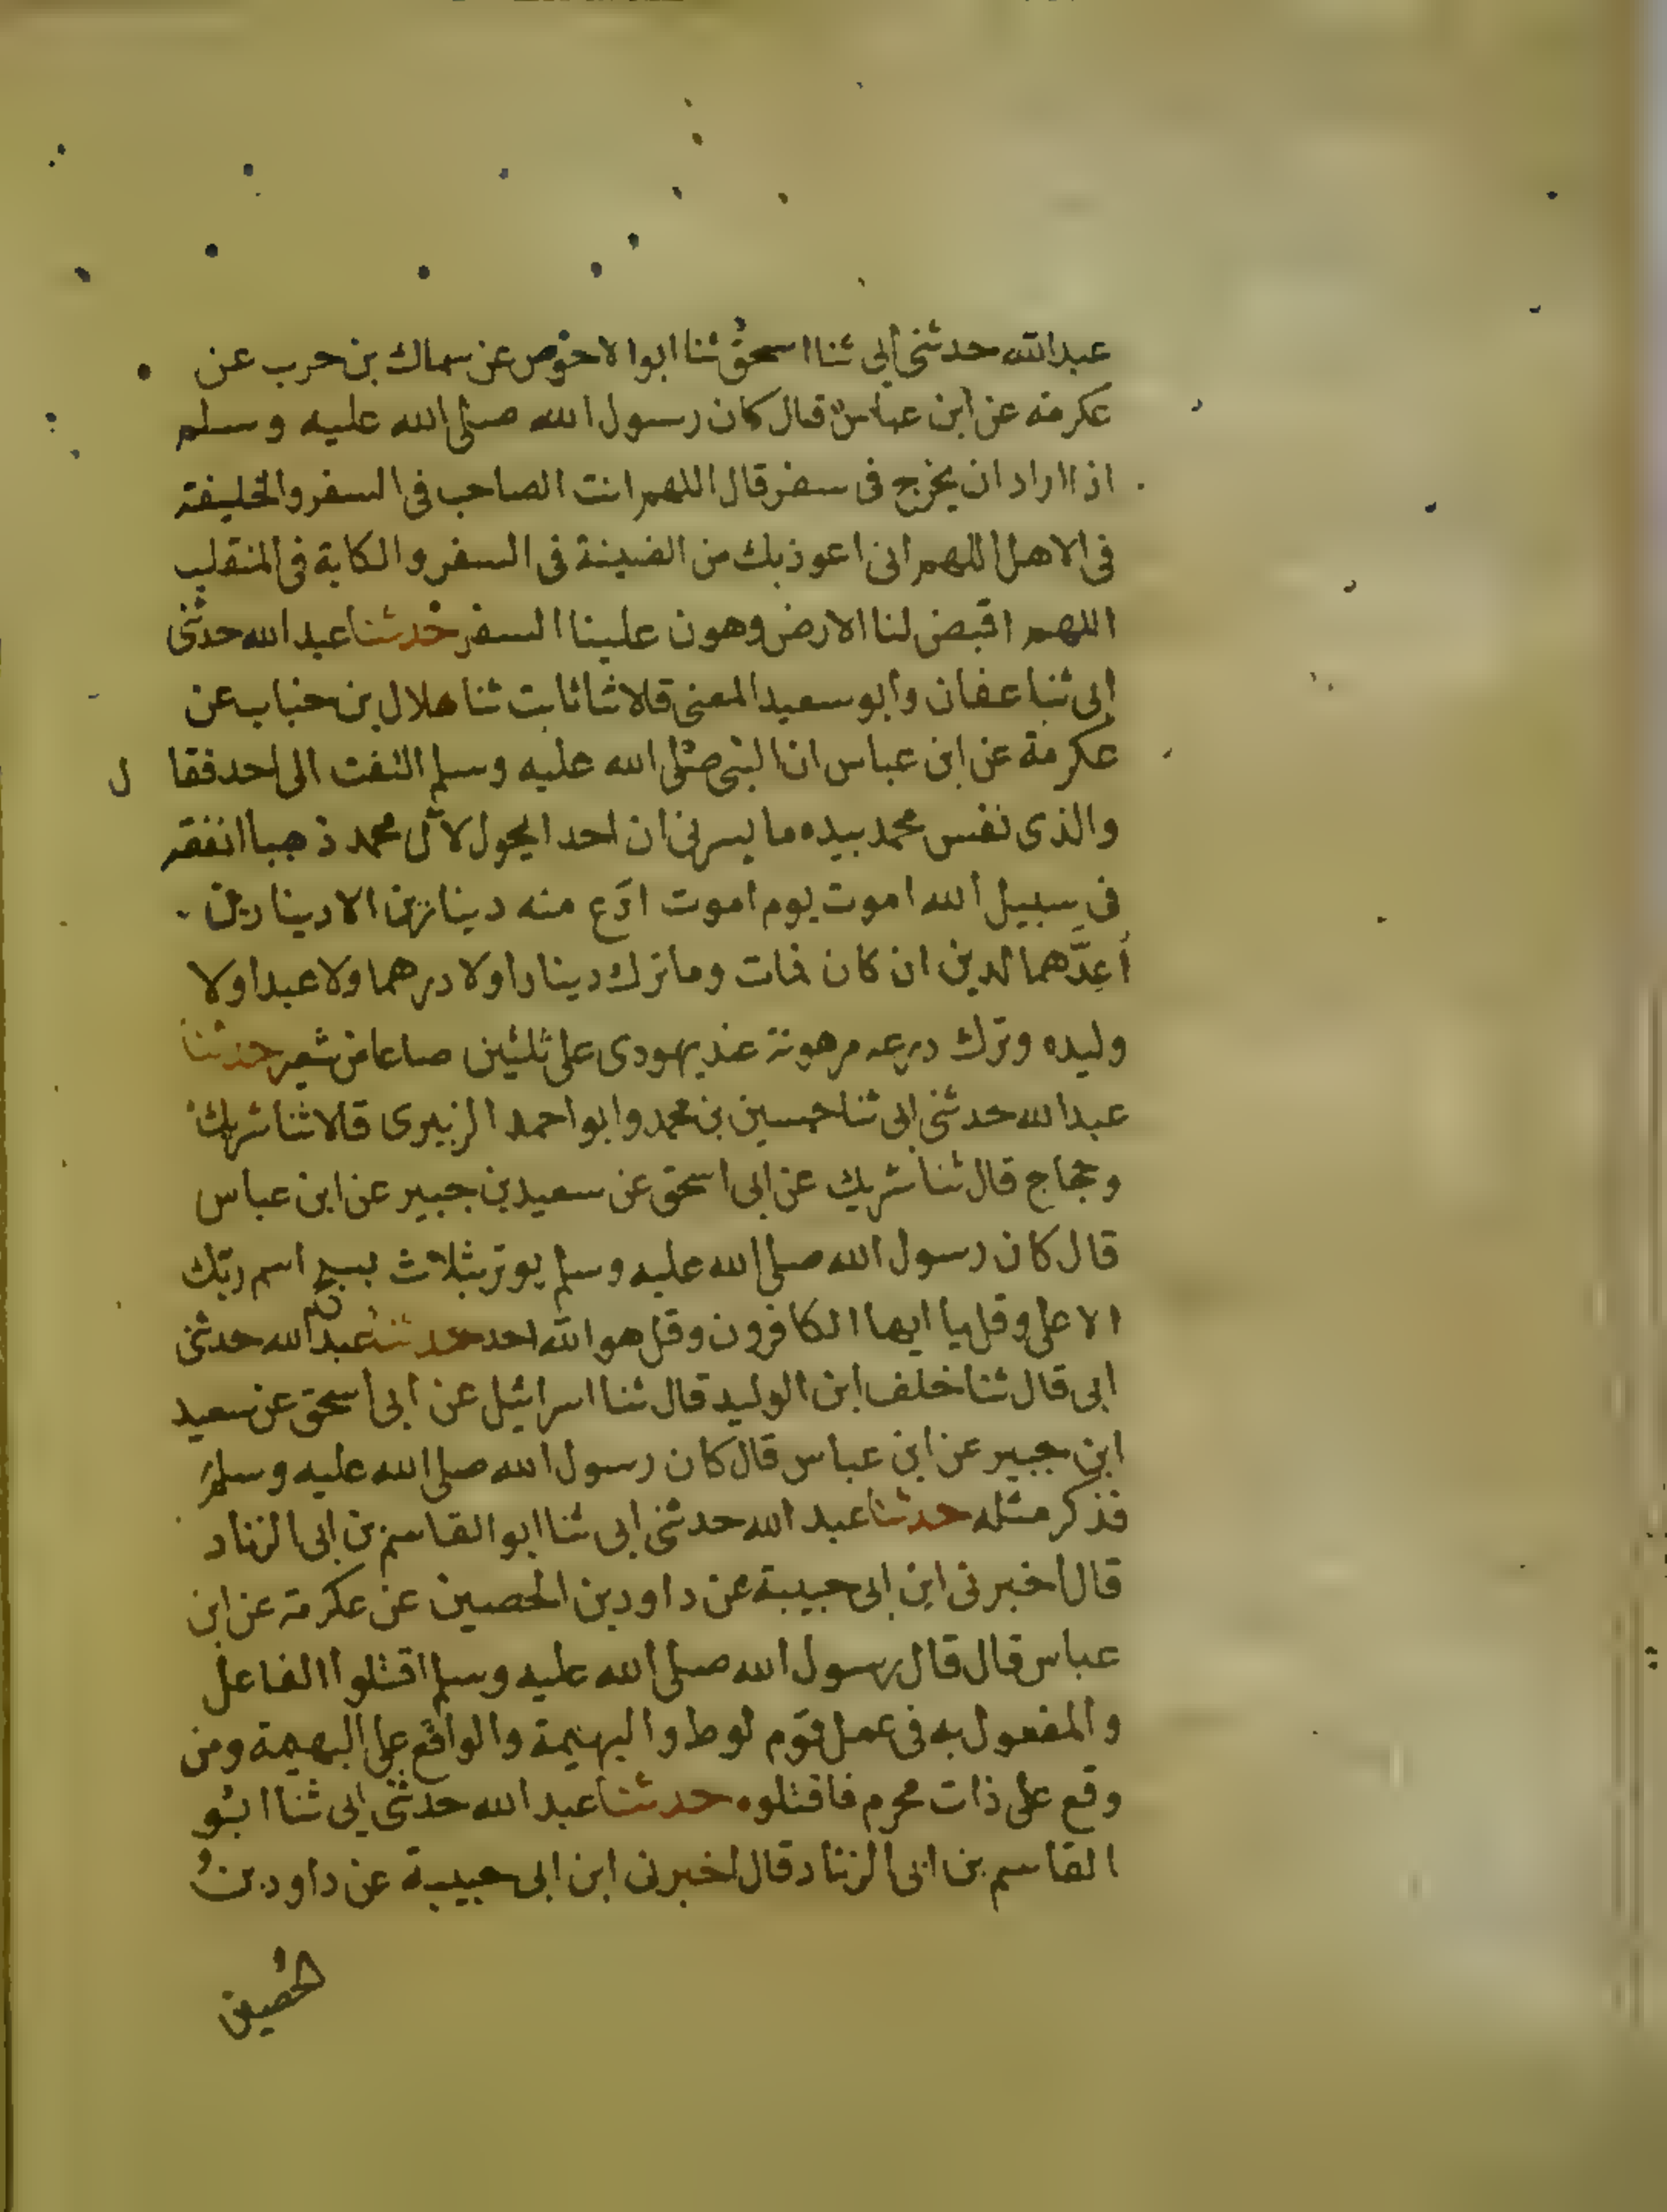 عبدالله حدثنى ابى ثنا اسحق ثنا ابوا لاحوص عن سماك بن حرب عن
عكرمة عن ابن عباس قال كان رسول الله صلى الله عليه وسلم
اذا اراد ان يخرج فى سفر قال اللهم انت الصاحب فى السفر والخليفة
فى الاهل اللهم انى اعوذ بك من الضينة فى السفر والكابة فى المنقلب
اللهم اقبض لنا الارض وهون علينا السفر حدثنا عبد الله حدثنى
ابى ثنا عفان وابو سعيد المعنى قالا ثنا ثابت ثنا هلال بن خباب عن
عكرمة عن ابن عباس ان النبى صلى الله عليه وسلم التفت الى احد فقا ل
والذى نفس محمد بيده ما يسرنى ان احدا يحول لآل محمد ذهبا انفقه
فى سبيل الله اموت يوم اموت ادَع منه دينارين الا دينارين
أعِدَّهما لدين ان كان فمات وما ترك دينارا ولا درهما ولا عبدا ولا
وليده وترك درعه مرهونة عند يهودى على ثلثين صاعا من شعير حدثنا
عبد الله حدثنى ابى ثنا حسين بن محمد وابو احمد الزبيرى قالا ثنا شريك
وحجاج قال ثنا شريك عن ابى اسحق عن سعيد بن جبير عن ابن عباس
قال كان رسول الله صلى الله عليه وسلم يوتر بثلاث بسبح اسم ربك
الاعلى وقل يا ايها الكافرون وقل هو الله احد حدثنا عبد الله حدثنى
ابى قال ثنا خلف ابن الوليد قال ثنا اسرائيل عن ابى اسحق عن سعيد
ابن جبير عن ابن عباس قال كان رسول الله صلى الله عليه وسلم
فذكر مثله حدثنا عبد الله حدثنى ابى ثنا ابو القاسم بن ابى الزناد
قال اخبرنى ابن ابى حبيبة عن داود بن الحصين عن عكرمة عن ابن
عباس قال قال رسول الله صلى الله عليه وسلم اقتلوا الفاعل
والمفعول به فى عمل قوم لوط والبهيمة والواقع على البهيمة ومن
وقع على ذات محرم فاقتلوه حدثنا عبد الله حدثنى ابى ثنا ابو
القاسم بن ابى الزناد قال اخبرنى ابن ابى حبيبة عن داود بن
الحصين